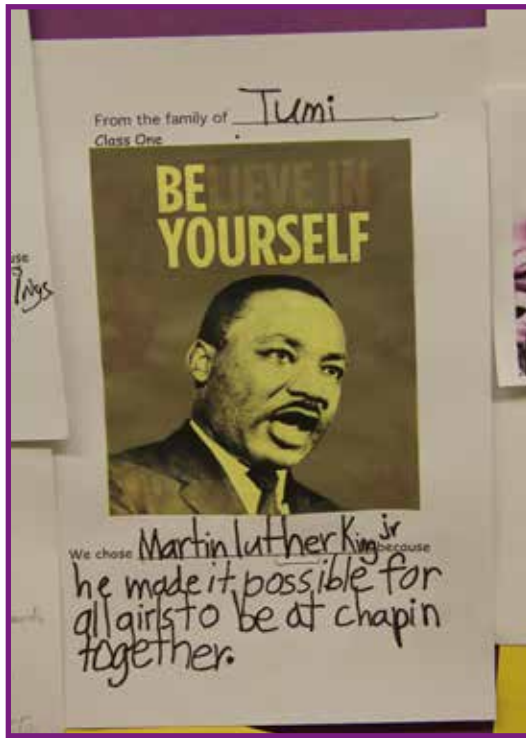 From the family of Tumi
Class One
BELIEVE IN
YOURSELF
We chose Martin luther King jr because
he made it possible for
all girls to be at chapin
together.